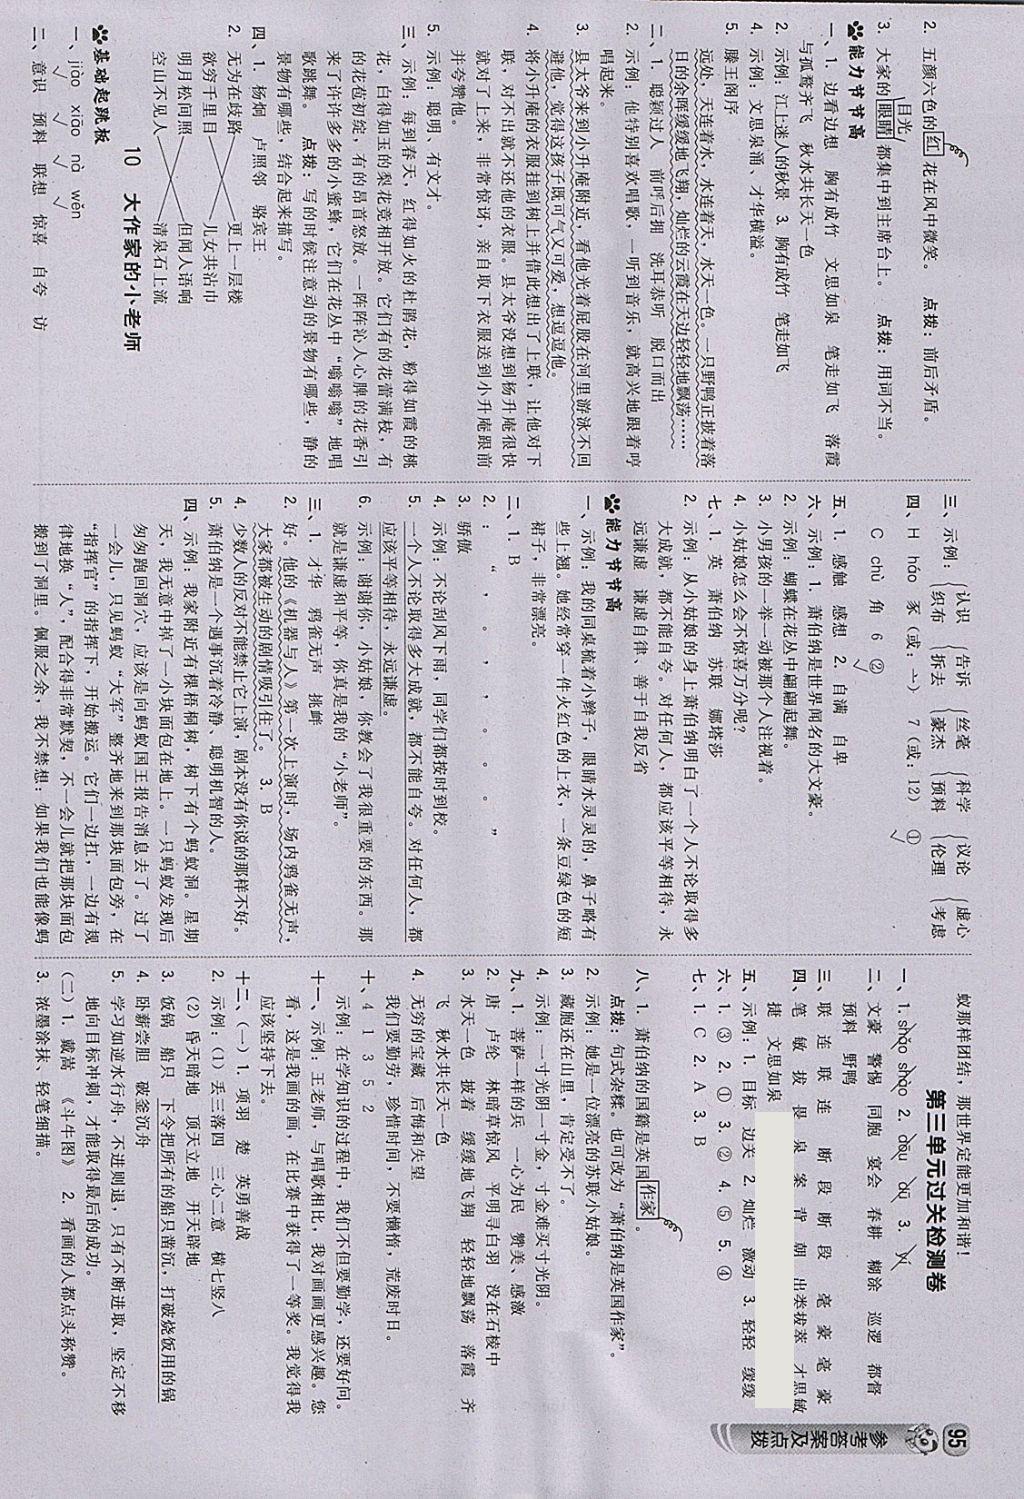 2. 五颜六色的红花在风中微笑。 点拨：前后矛盾。
目光
3. 大家的眼睛都集中到主席台上。 点拨：用词不当。
能力节节高
一、1. 边看边想 胸有成竹 文思如泉 笔走如飞 落霞
与孤鹜齐飞 秋水共长天一色
2. 示例：江上迷人的秋景 3. 胸有成竹 笔走如飞
4. 示例：文思泉涌、才华横溢。
5. 滕王阁序
远处，天连着水，水连着天，水天一色。一只野鸭正披着落
日的余晖缓缓地飞翔，灿烂的云霞在天边轻轻地飘荡……
二、1. 聪颖过人 前呼后拥 洗耳恭听 脱口而出
2. 示例：他特别喜欢唱歌，一听到音乐，就高兴地跟着哼
唱起来。
3. 县太爷来到小升庵附近，看他光着屁股在河里游泳不回
避他，觉得这孩子既可气又可爱，想逗逗他。
4. 将小升庵的衣服挂到树上并借此想出了上联，让他对下
联，对不出就不还他的衣服。县太爷没想到杨升庵很快
就对了上来，非常惊讶，亲自取下衣服送到小升庵跟前
并夸赞他。
5. 示例：聪明、有文才。
三、示例：每到春天，红得如火的杜鹃花，粉得如霞的桃
花，白得如玉的梨花竞相开放。它们有的花蕾满枝，有
的花苞初绽，有的昂首怒放。一阵阵沁人心脾的花香引
来了许许多多的小蜜蜂，它们在花丛中“嗡嗡嗡”地唱
歌跳舞。 点拨：写的时候注意动的景物有哪些，静的
景物有哪些，结合起来描写。
四、1. 杨炯 卢照邻 骆宾王
2. 无为在歧路 更上一层楼
欲穷千里目 儿女共沾巾
明月松间照 但闻人语响
空山不见人 清泉石上流
10 大作家的小老师
基础起跳板
一、jiāo xiāo nà wěn
二、意识 预料 联想 惊喜 自夸 访
三、示例：认识 告诉 丝毫 科学 议论 虚心
织布 拆去 豪杰 预料 伦理 考虑
四、H háo 豕（或：亠） 7（或：12） ①
C chù 角 6 ②
五、1. 感触 感想 2. 自满 自卑
六、示例：1. 萧伯纳是世界闻名的大文豪。
2. 示例：蝴蝶在花丛中翩翩起舞。
3. 小男孩的一举一动被那个人注视着。
4. 小姑娘怎么会不惊喜万分呢？
七、1. 英 萧伯纳 苏联 娜塔莎
2. 示例：从小姑娘的身上萧伯纳明白了一个人不论取得多
大成就，都不能自夸。对任何人，都应该平等相待，永
远谦虚 谦虚自律、善于自我反省
能力节节高
一、示例：我的同桌梳着小辫子，眼睛水灵灵的，鼻子略有
些上翘。她经常穿一件火红色的上衣，一条豆绿色的短
裙子，非常漂亮。
二、1. B
2. ： “ ， 。 ， ， 。 。 ”
3. 骄傲
4. 示例：不论刮风下雨，同学们都按时到校。
5. 一个人不论取得多大成就，都不能自夸。对任何人，都
应该平等相待，永远谦虚。
6. 示例：谢谢你，小姑娘，你教会了我很重要的东西。那
就是谦虚和平等，你真是我的“小老师”。
三、1. 才华 鸦雀无声 挑衅
2. 好。他的《机器与人》第一次上演时，场内鸦雀无声，
大家都被生动的剧情吸引住了。 3. B
4. 少数人的反对不能禁止它上演，剧本没有你说的那样不好。
5. 萧伯纳是一个遇事沉着冷静、聪明机智的人。
四、示例：我家附近有棵梧桐树，树下有个蚂蚁洞。星期
天，我无意中掉了一小块面包在地上。一只蚂蚁发现后
匆匆跑回洞穴，应该是向蚂蚁国王报告消息去了。过了
一会儿，只见蚂蚁“大军”整齐地来到那块面包旁，在
“指挥官”的指挥下，开始搬运。它们一边扛，一边有规
律地换“人”，配合得非常默契，不一会儿就把那块面包
搬到了洞里。佩服之余，我不禁想：如果我们也能像蚂
蚁那样团结，那世界定能更加和谐！
第三单元过关检测卷
一、1. shǎo shào 2. dōu dū 3. yì
二、文豪 警惕 同胞 宴会 春耕 糊涂 巡逻 都督
预料 野鸭
三、联 连 联 连 断 段 断 段 毫 豪 毫 豪
四、笔 敏 拔 畏 泉 案 背 朝 出类拔萃 才思敏
捷 文思如泉
五、示例：1. 目标 边关 2. 灿烂 激动 3. 轻轻 缓缓
六、1. ③ 2. ① 3. ② 4. ⑤ 5. ④
七、1. C 2. A 3. B
八、1. 萧伯纳的国籍是英国作家。
点拨：句式杂糅。也可改为“萧伯纳是英国作家”。
2. 示例：她是一位漂亮的苏联小姑娘。
3. 藏胞还在山里，肯定受不了。
4. 示例：一寸光阴一寸金，寸金难买寸光阴。
九、1. 菩萨一样的兵 一心为民 赞美、感激
2. 唐 卢纶 林暗草惊风 平明寻白羽 没在石棱中
3. 水天一色 披着 缓缓地飞翔 轻轻地飘荡 落霞 齐
飞 秋水共长天一色
4. 无穷的宝藏 后悔和失望
我们要勤劳，珍惜时间，不要懒惰，荒废时日。
十、4 1 3 5 2
示例：在学知识的过程中，我们不但要勤学，还要好问。
十一、示例：王老师，与唱歌相比，我对画画更感兴趣。您
看，这是我画的画，在比赛中获得了一等奖。我觉得我
应该坚持下去。
十二、（一）1. 项羽 楚 英勇善战
2. 示例：（1）丢三落四 三心二意 横七竖八
（2）昏天暗地 顶天立地 开天辟地
3. 饭锅 船只 下令把所有的船只凿沉，打破烧饭用的锅
4. 卧薪尝胆 破釜沉舟
5. 学习如逆水行舟，不进则退，只有不断进取，坚定不移
地向目标冲刺，才能取得最后的成功。
（二）1. 戴嵩 《斗牛图》 2. 看画的人都点头称赞。
3. 浓墨涂抹、轻笔细描。
参考答案及点拨
95